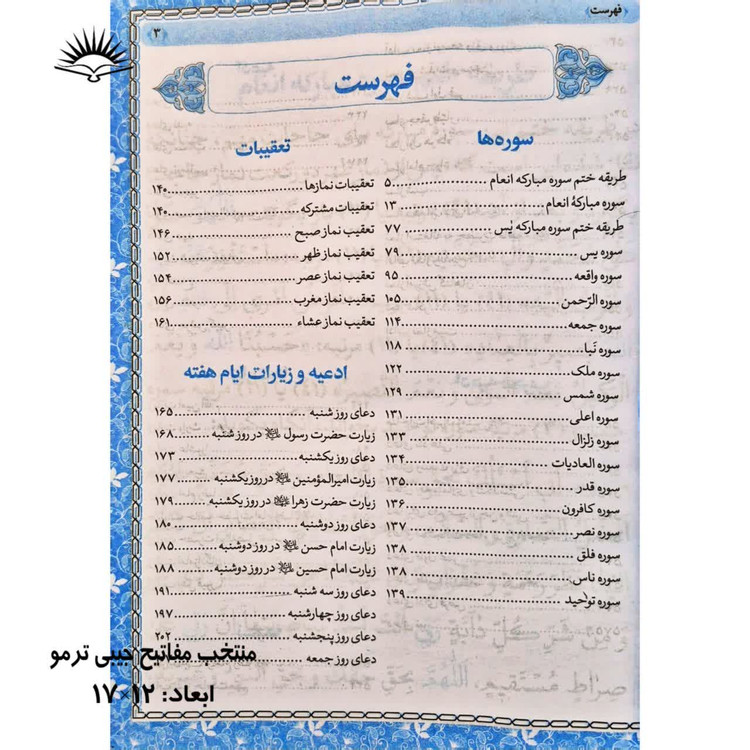 ﴿فهرست﴾
﴿۳﴾
فهرست
سوره‌ها
طریقه ختم سوره مبارکه انعام ........ ۵
سوره مبارکهٔ انعام ........ ۱۳
طریقه ختم سوره مبارکه یٰس ........ ۷۷
سوره یس ........ ۷۹
سوره واقعه ........ ۹۵
سوره الرّحمن ........ ۱۰۵
سوره جمعه ........ ۱۱۴
سوره نَبا ........ ۱۱۸
سوره ملک ........ ۱۲۲
سوره شمس ........ ۱۲۹
سوره اعلی ........ ۱۳۱
سوره زلزال ........ ۱۳۳
سوره العادیات ........ ۱۳۴
سوره قدر ........ ۱۳۵
سوره کافرون ........ ۱۳۶
سوره نصر ........ ۱۳۷
سوره فلق ........ ۱۳۸
سوره ناس ........ ۱۳۸
سوره توحید ........ ۱۳۹
تعقیبات
تعقیبات نمازها ........ ۱۴۰
تعقیبات مشترکه ........ ۱۴۰
تعقیب نماز صبح ........ ۱۴۶
تعقیب نماز ظهر ........ ۱۵۲
تعقیب نماز عصر ........ ۱۵۴
تعقیب نماز مغرب ........ ۱۵۶
تعقیب نماز عشاء ........ ۱۶۱
ادعیه و زیارات ایام هفته
دعای روز شنبه ........ ۱۶۵
زیارت حضرت رسول ﷺ در روز شنبه ........ ۱۶۸
دعای روز یکشنبه ........ ۱۷۳
زیارت امیرالمؤمنین در روز یکشنبه ........ ۱۷۷
زیارت حضرت زهرا در روز یکشنبه ........ ۱۷۹
دعای روز دوشنبه ........ ۱۸۰
زیارت امام حسن در روز دوشنبه ........ ۱۸۵
زیارت امام حسین در روز دوشنبه ........ ۱۸۸
دعای روز سه شنبه ........ ۱۹۱
دعای روز چهارشنبه ........ ۱۹۷
دعای روز پنجشنبه ........ ۲۰۲
دعای روز جمعه
منتخب مفاتیح جیبی ترمو
ابعاد: ۱۲×۱۷